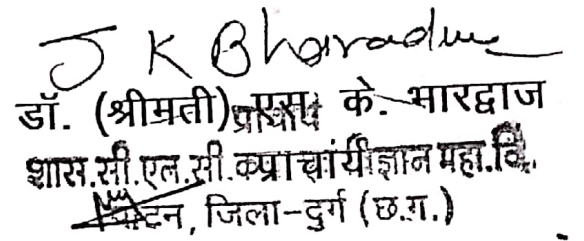 J K Bharadwa
डॉ. (श्रीमती) एस. के. भारद्वाज
प्राचार्य
शास.सी.एल.सी. महा.वि.
पाटन, जिला-दुर्ग (छ.ग.)